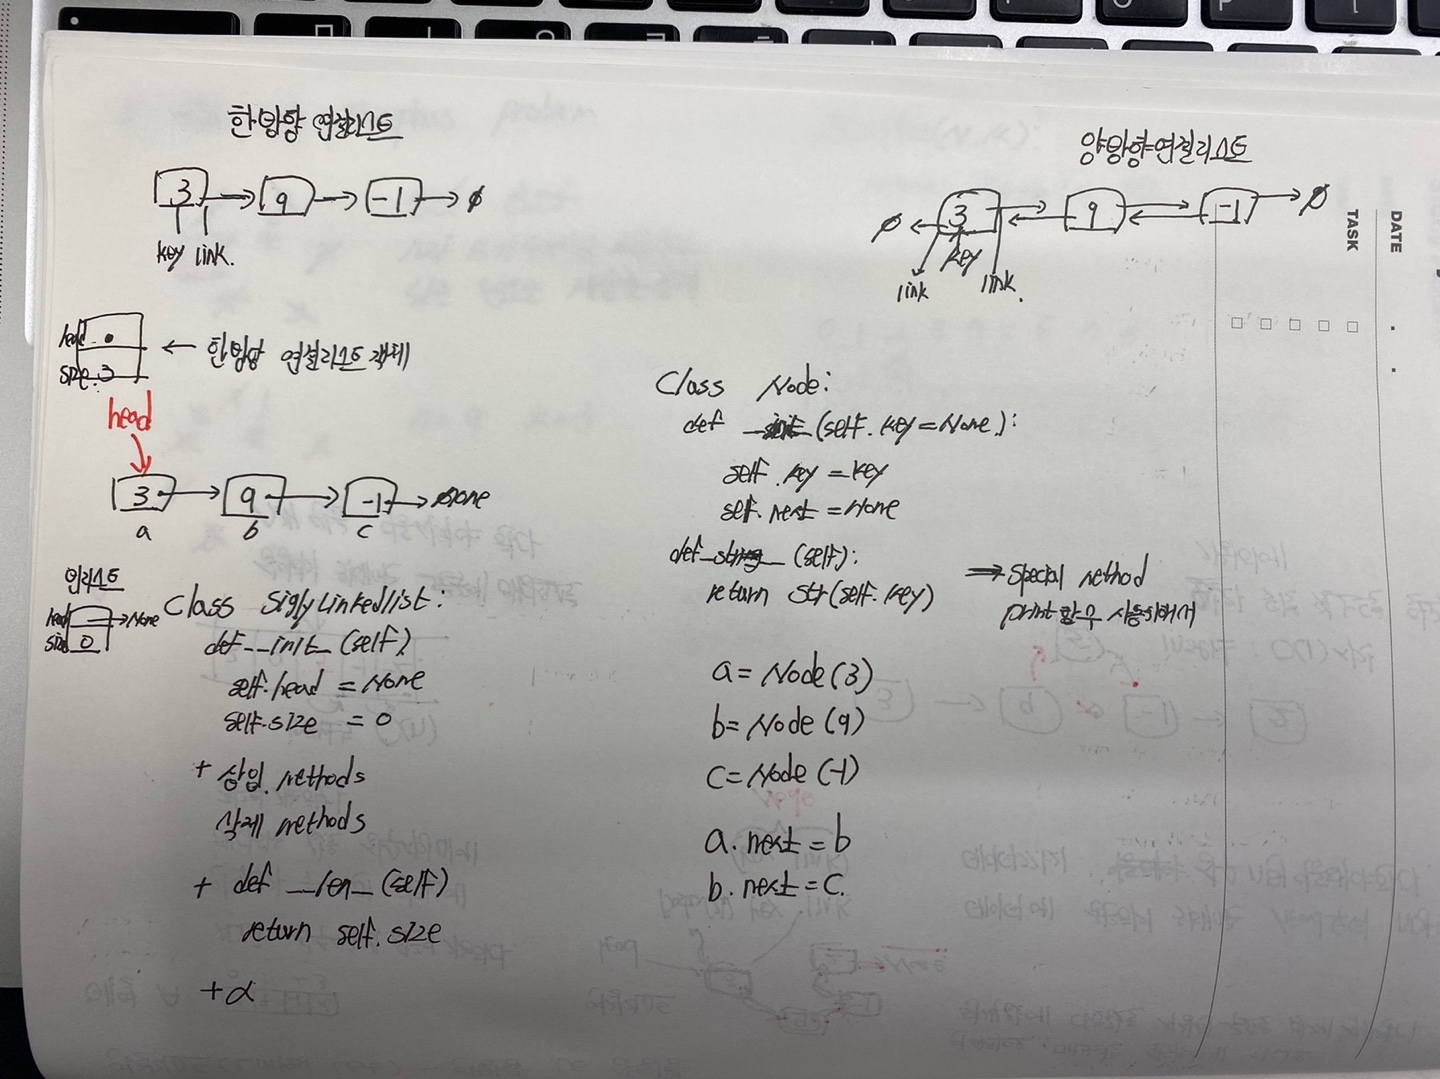 한방향 연결리스트
3 → 9 → -1 → ∅
key link.
head •
size: 3
← 한방향 연결리스트 객체
head
3 → 9 → -1 → None
a b c
빈리스트
head → None
size 0
Class SiglyLinkedlist:
def __init__(self)
self.head = None
self.size = 0
+ 삽입. methods
삭제 methods
+ def __len__(self)
return self.size
+α
양방향연결리스트
∅ ← 3 9 -1 → ∅
link key link.
Class Node:
def __init__(self. key=None):
self.key = key
self.next = None
def __str__(self):
return str(self.key)
⇒ special method
a = Node(3)
b= Node(9)
c= Node(-1)
a. next = b
b. next = c.
TASK
DATE